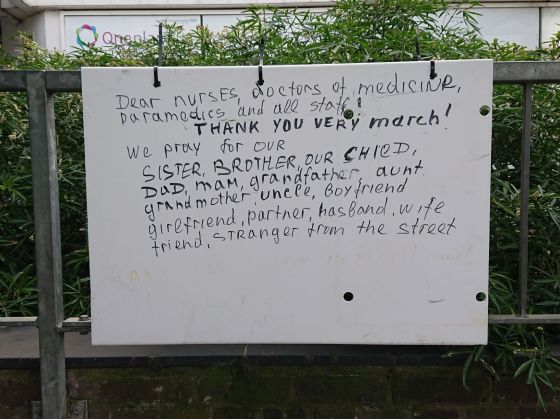 Dear nurses, doctors of medicine,
paramedics and all staff!
THANK YOU VERY march!
We pray for our
SISTER, BROTHER, OUR CHILD,
DaD, mam, grandfather, aunt
grandmother, uncle, Boyfriend
girlfriend, partner, hasband, wife
friend, STranger from the street